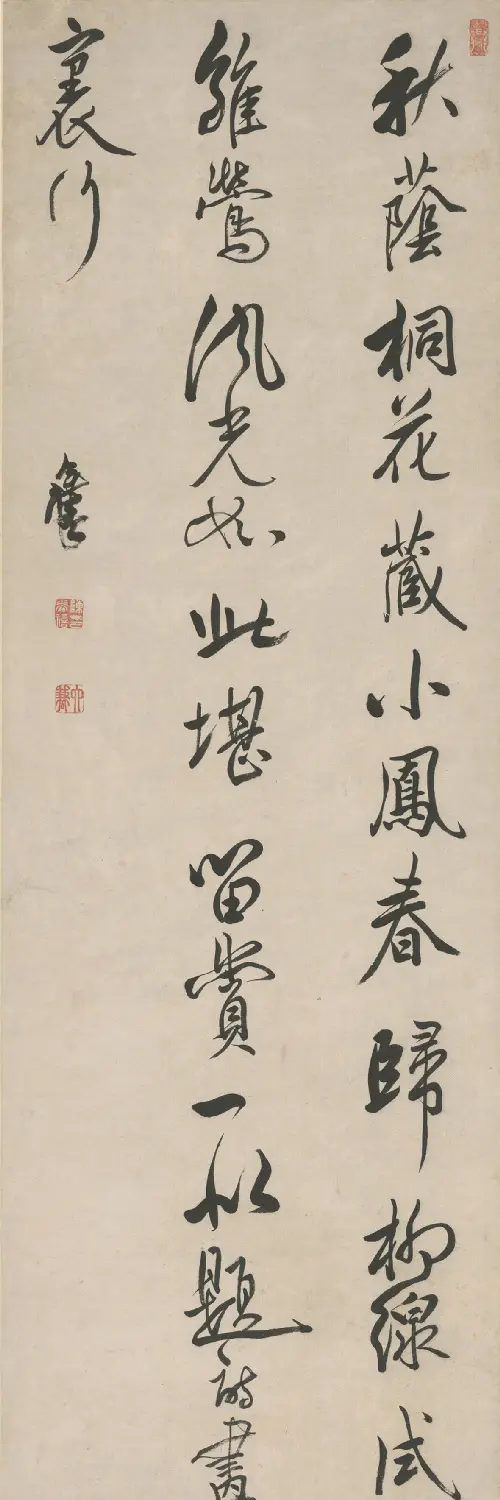 秋蔭桐花藏小鳳春歸柳線試
雛鶯風光如此堪留賞一似題詩畫
裏行